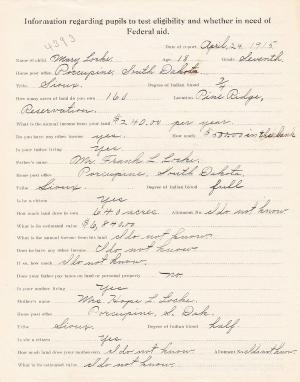 Information regarding pupils to test eligibility and whether in need of
Federal aid.
4393
Date of report April, 24, 1915
Name of child Mary Locke. Age 18 Grade Seventh.
Home post office Porcupine, South Dakota
Tribe Sioux. Degree of Indian blood 3/4
How many acres of land do you own 160 Location Pine Ridge,
Reservation.
What is the annual income from your land $240.00 per year.
Do you have any other income yes. How much in the bank
Is your father living yes.
Father's name Mr. Frank L Locke.
Home post office Porcupine, South Dakota.
Tribe Sioux. Degree of Indian blood full
Is he a citizen Yes
How much land does he own 640 acres. Allotment No. I do not know.
What is its estimated value $6,840.00
What is the annual income from his land I do not know.
Does he have any other income I do not know.
If so, how much I do not know.
Does your father pay taxes on land or personal property no
Is your mother living yes
Mother's name Mrs Hope L Locke.
Home post office Porcupine, S. Dak.
Tribe Sioux. Degree of Indian blood half
Is she a citizen Yes
How much land does your mother own I do not know. Allotment No. I do not know.
What is its estimated value I do not know.